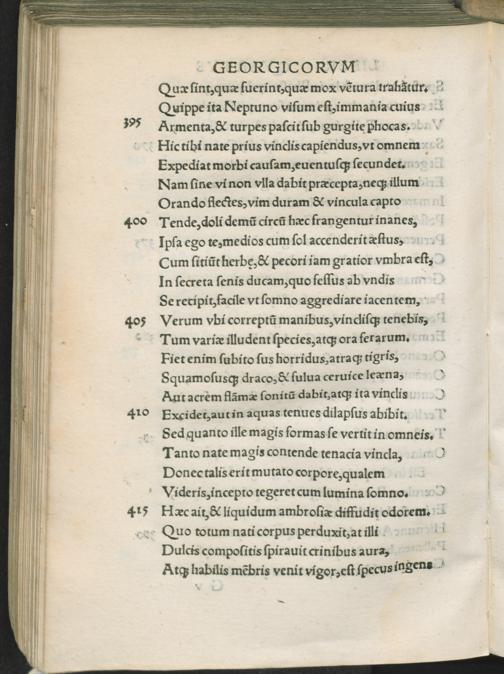 GEORGICORVM
Quæ sint,quæ fuerint,quæ mox vētura trahātur.
Quippe ita Neptuno visum est,immania cuius
395 Armenta,& turpes pascit sub gurgite phocas.
Hic tibi nate prius vinclis capiendus,vt omnem
Expediat morbi causam,euentusq; secundet.
Nam sine vi non vlla dabit præcepta,neq; illum
Orando flectes,vim duram & vincula capto
400 Tende,doli demū circū hæc frangentur inanes,
Ipsa ego te,medios cum sol accenderit æstus,
Cum sitiūt herbę,& pecori iam gratior vmbra est,
In secreta senis ducam,quo fessus ab vndis
Se recipit,facile vt somno aggrediare iacentem,
405 Verum vbi correptū manibus,vinclisq; tenebis,
Tum variæ illudent species,atq; ora ferarum.
Fiet enim subito sus horridus,atraq; tigris,
Squamosusq; draco,& fulua ceruice leæna,
Aut acrem flāmæ sonitū dabit,atq; ita vinclis
410 Excidet,aut in aquas tenues dilapsus abibit.
Sed quanto ille magis formas se vertit in omneis.
Tanto nate magis contende tenacia vincla,
Donec talis erit mutato corpore,qualem
Videris,incepto tegeret cum lumina somno.
415 Hæc ait,& liquidum ambrosiæ diffudit odorem.
Quo totum nati corpus perduxit,at illi
Dulcis compositis spirauit crinibus aura,
Atq; habilis mēbris venit vigor,est specus ingens